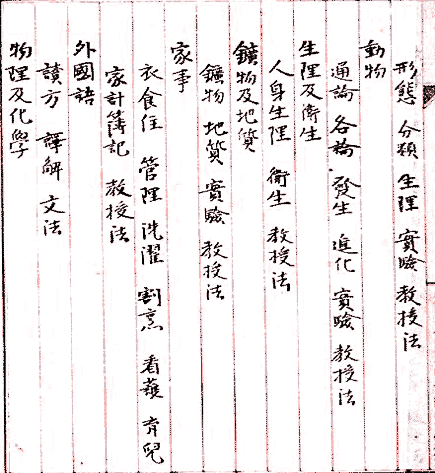 形態 分類 生理 實驗 教授法
動物
通論 各論 發生 進化 實驗 教授法
生理及衛生
人身生理 衛生 教授法
鑛物及地質
鑛物 地質 實驗 教授法
家事
衣食住 管理 洗濯 割烹 看護 育兒
家計簿記 教授法
外國語
讀方 譯解 文法
物理及化學